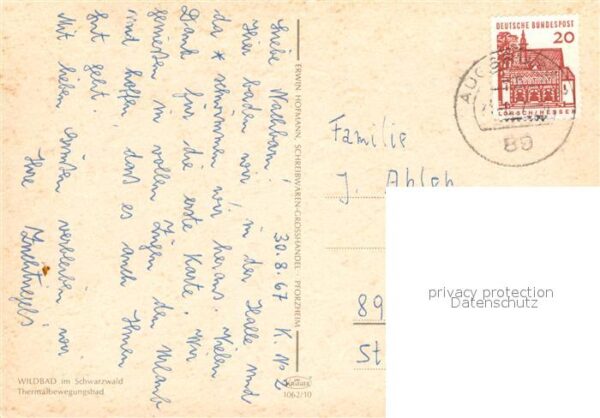 30.8.67 K. No 2
Liebe Wallbau!
Hier baden wir, in der Halle und
der * schwimmen wir heraus. Vielen
Dank für die erste Karte. Wir
genießen in vollen Zügen den Urlaub
und hoffen daß es auch Ihnen
gut geht.
Mit lieben Grüßen verbleiben wir
Ihre
ERWIN HOFMANN, SCHREIBWAREN-GROSSHANDEL · PFORZHEIM
WILDBAD im Schwarzwald
Thermalbewegungsbad
1062/10
DEUTSCHE BUNDESPOST
20
LORSCH/HESSEN
AUGSBURG
89
Familie
J.
89
St
privacy protection
Datenschutz